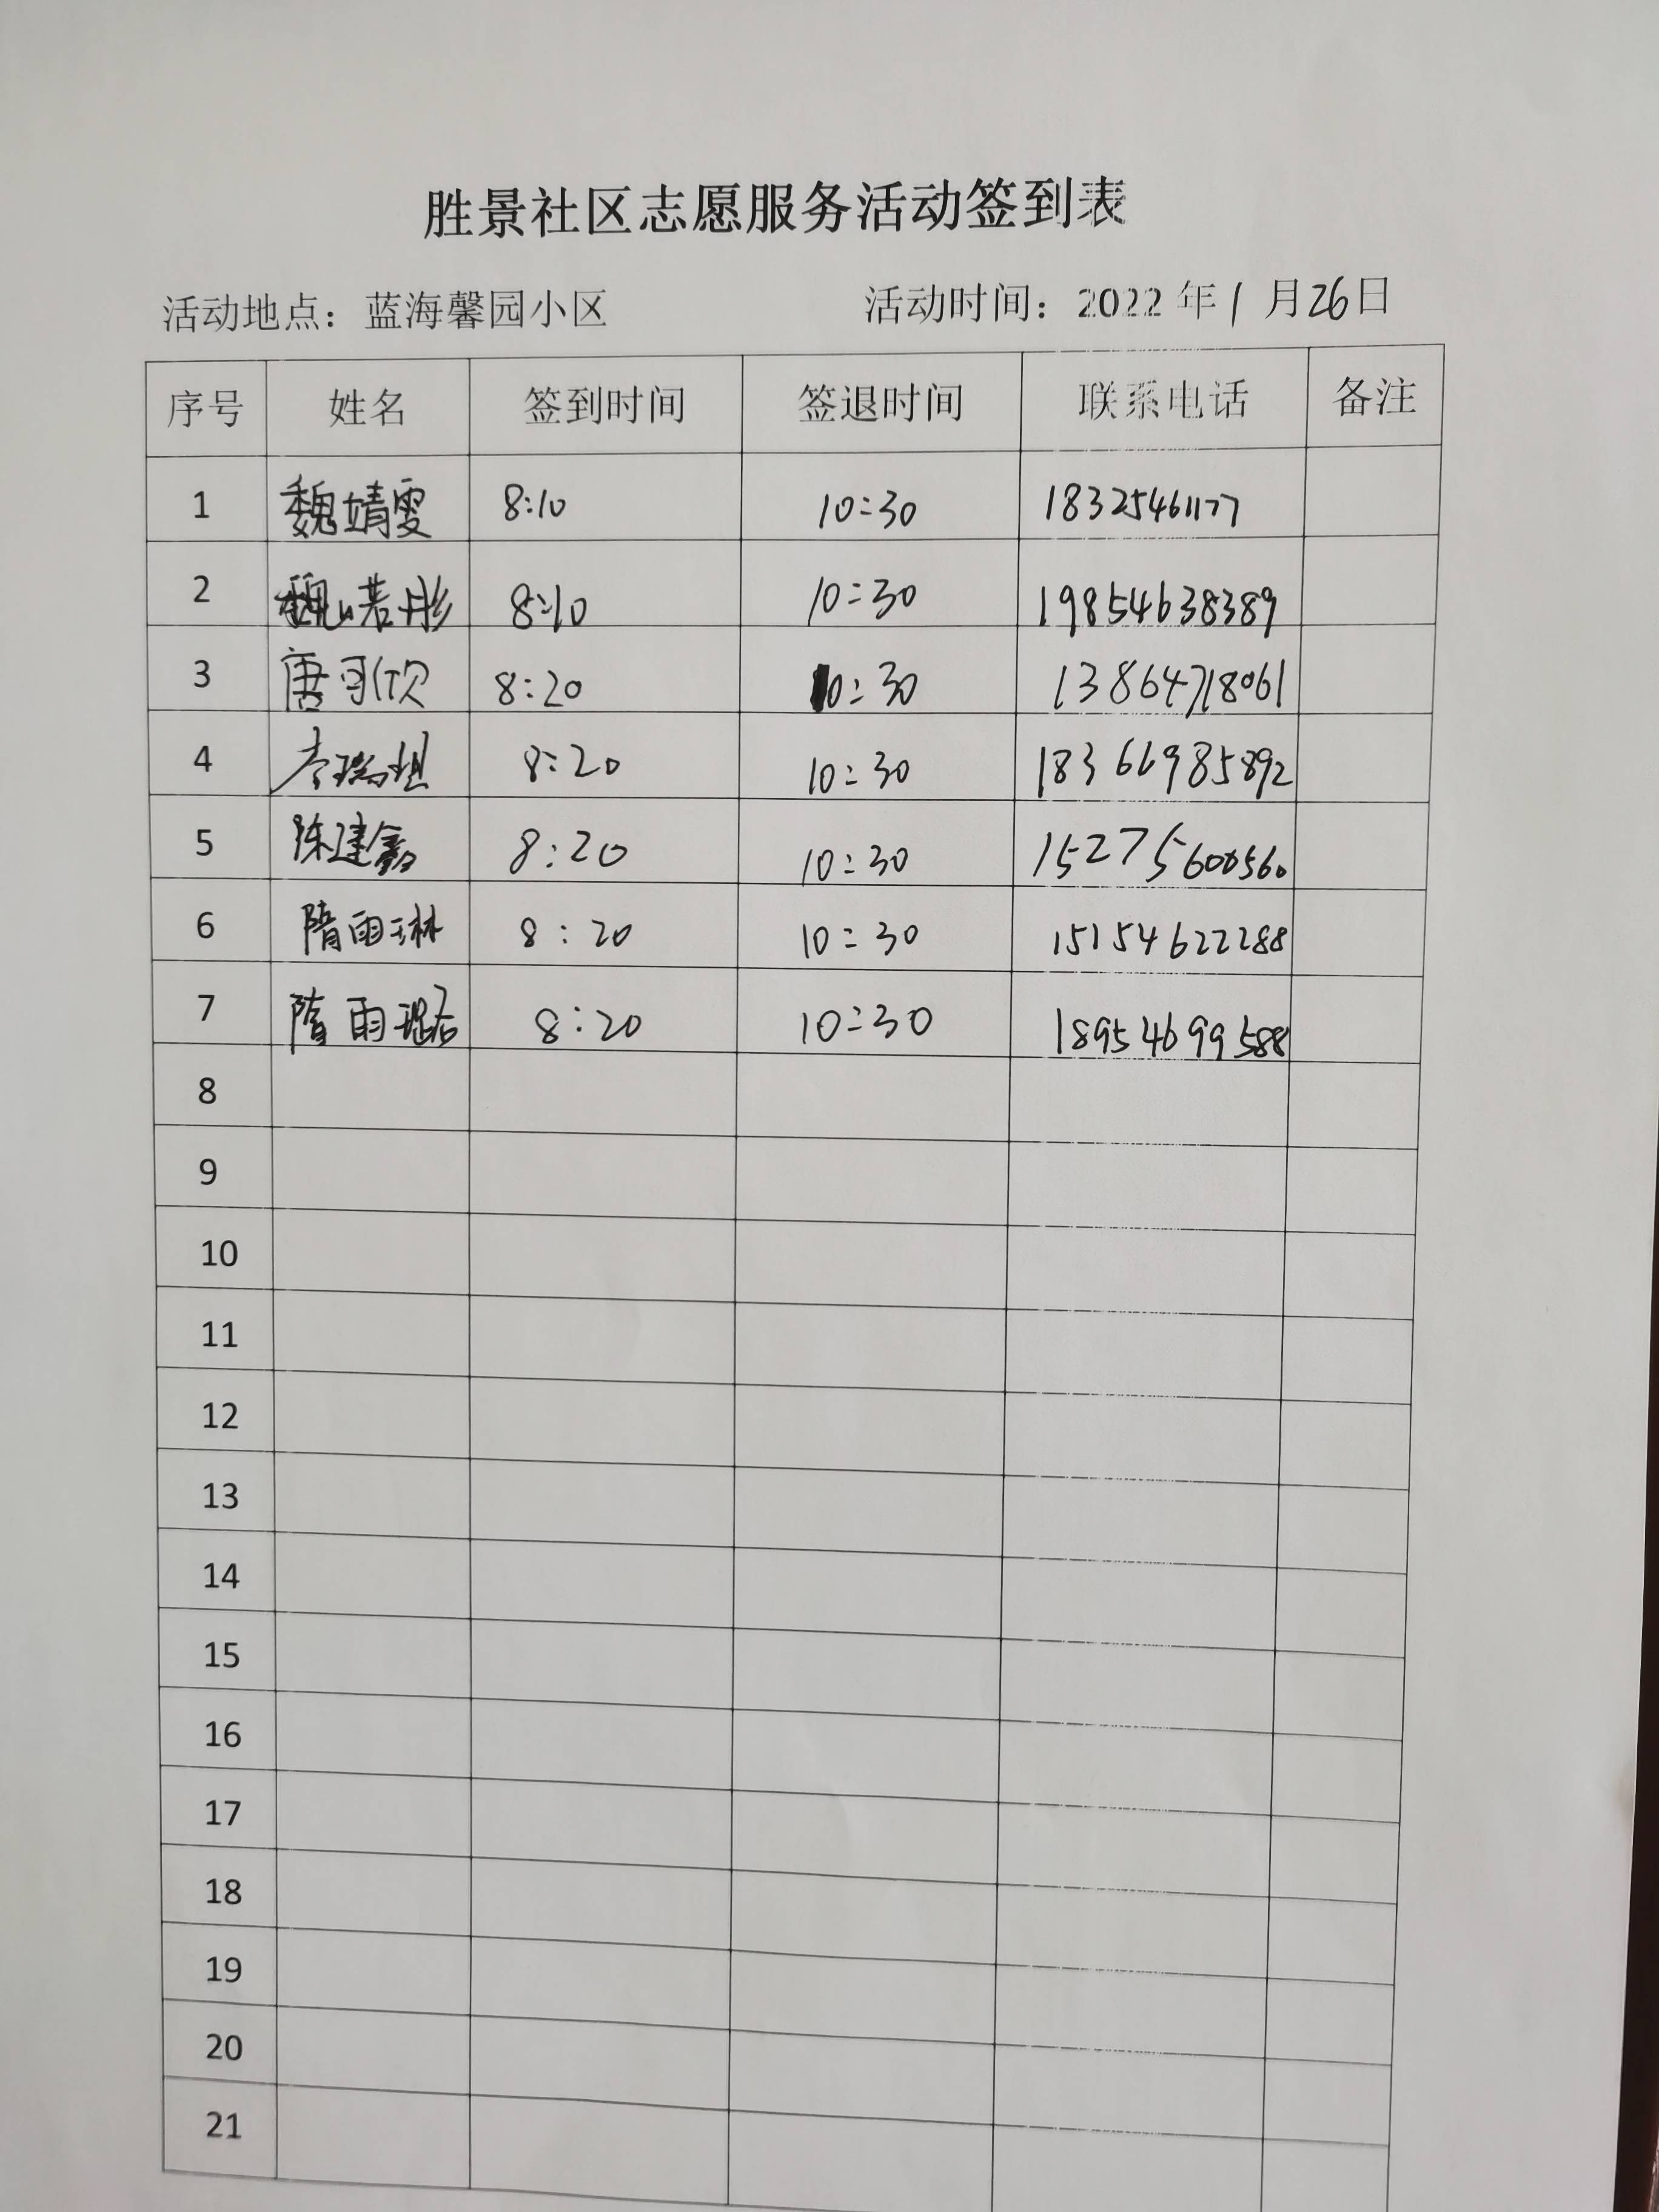 胜景社区志愿服务活动签到表
活动地点：蓝海馨园小区 活动时间：2022年1月26日
序号 姓名 签到时间 签退时间 联系电话 备注
1 魏婧雯 8:10 10:30 18325461177
2 魏若彤 8:10 10:30 19854638389
3 唐可欣 8:20 10:30 13864718061
4 李瑞 8:20 10:30 18366985892
5 陈建鑫 8:20 10:30 15275600560
6 隋雨琳 8:20 10:30 15154622288
7 隋雨琚 8:20 10:30 18954699588
8
9
10
11
12
13
14
15
16
17
18
19
20
21